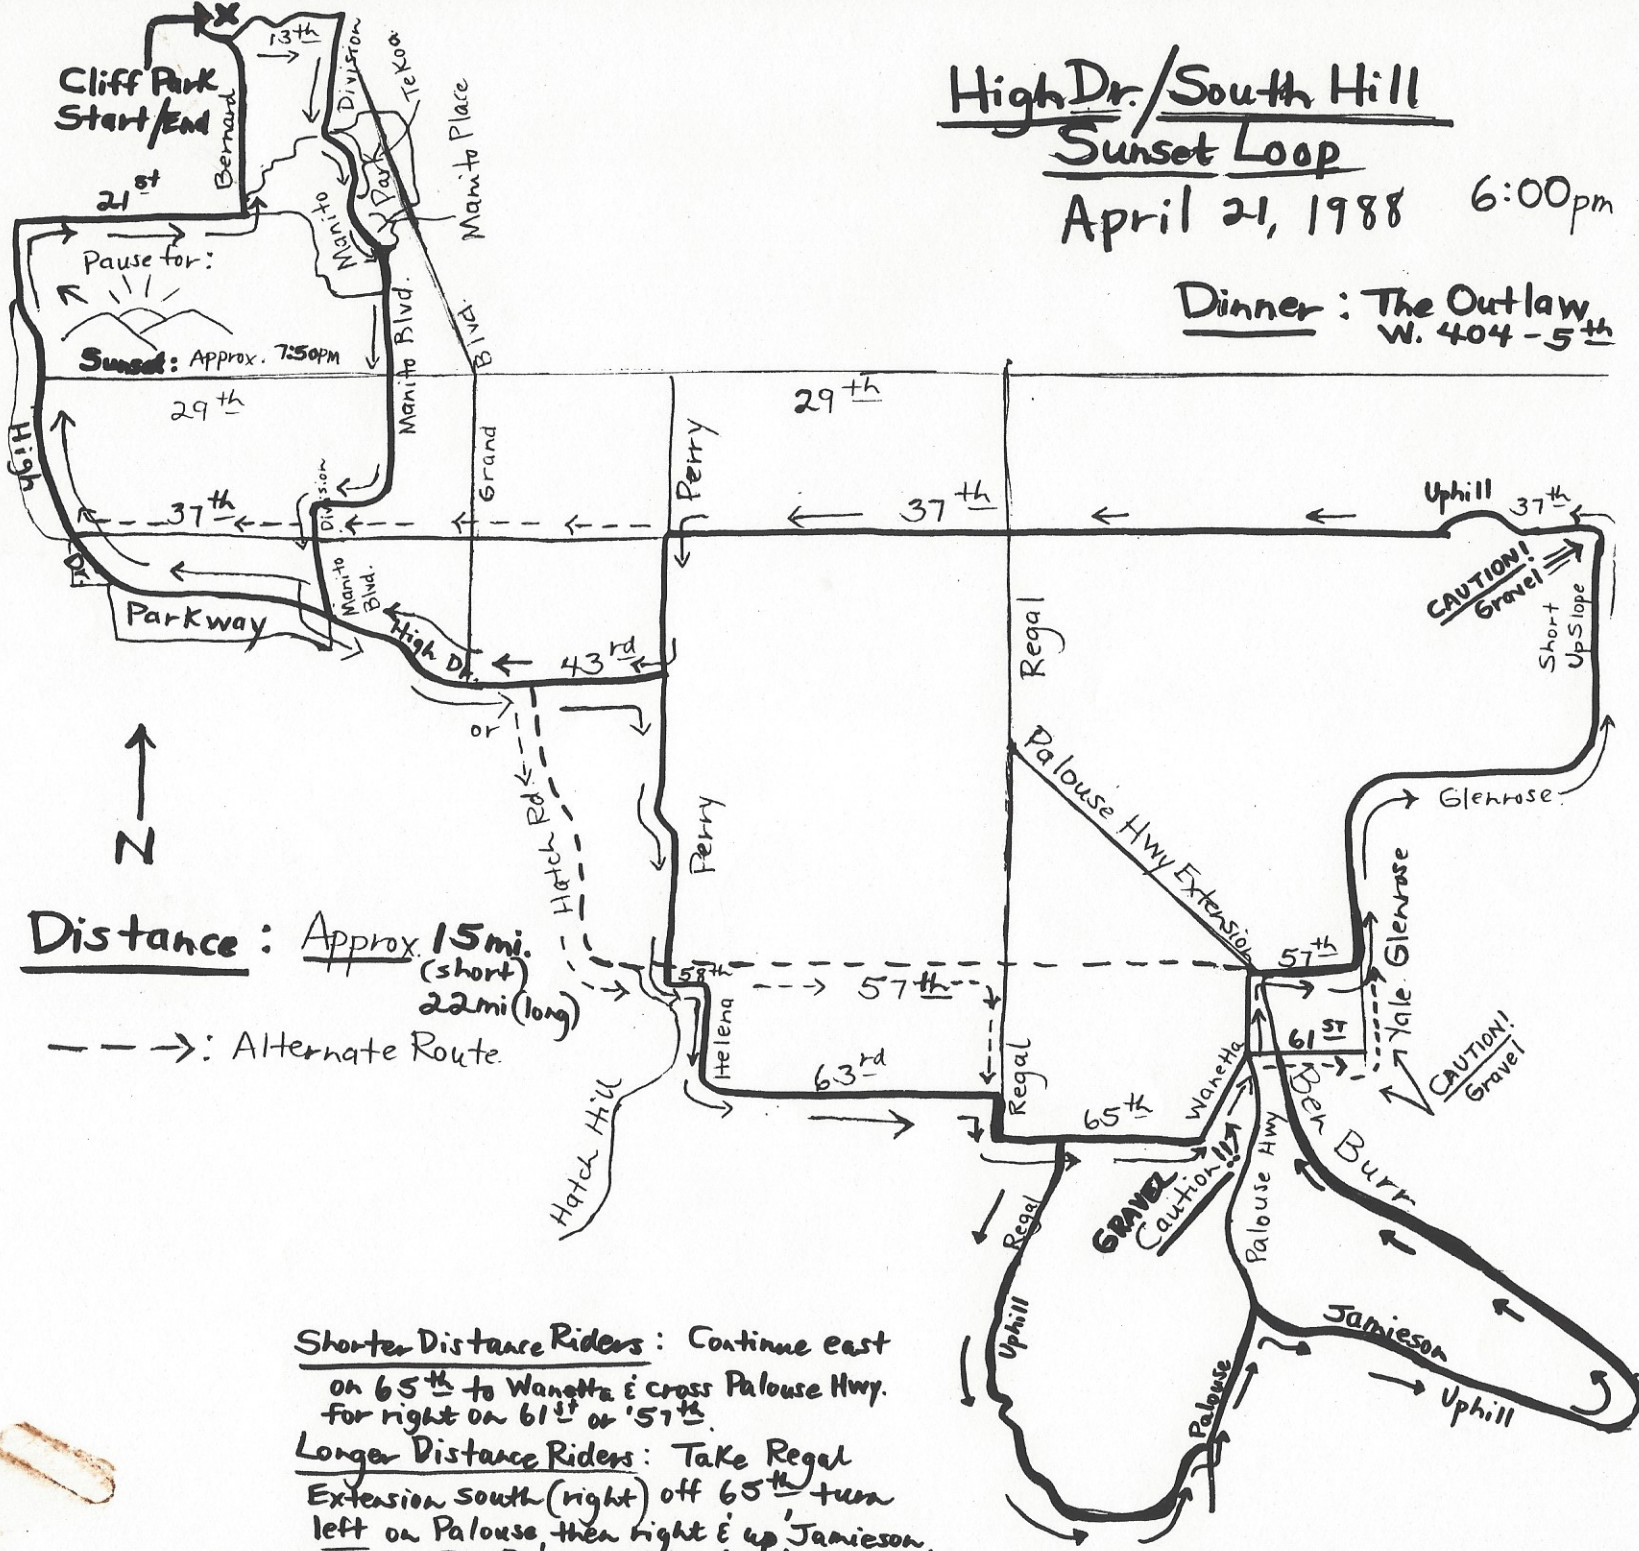 High Dr./South Hill
Sunset Loop
April 21, 1988
6:00pm
Dinner: The Outlaw
W. 404-5th
Cliff Park
Start/End
13th
Division
Tekoa
Manito Place
Bernard
Manito
Park
21st
Pause for:
Sunset: Approx. 7:50PM
Manito Blvd.
Blvd.
29th
29th
High
Dr.
Division
Grand
Perry
37th
37th
Uphill
37th
CAUTION!
Gravel
Short
UpSlope
Manito
Blvd.
Parkway
High Dr.
43rd
Regal
or
Hatch Rd
Perry
Palouse Hwy Extension
Glenrose
N
Distance: Approx. 15mi.
(short)
22mi (long)
-->: Alternate Route
58th
57th
57th
Yale Glenrose
Helena
Regal
61st
CAUTION!
Gravel
63rd
65th
Wanetta
Ben Burr
Hatch Hill
GRAVEL
Caution!!!
Palouse Hwy
Regal
Uphill
Jamieson
Uphill
Palouse
Shorter Distance Riders: Continue east
on 65th to Wanetta & cross Palouse Hwy.
for right on 61st or '57th.
Longer Distance Riders: Take Regal
Extension south (right) off 65th, turn
left on Palouse, then right & up Jamieson.